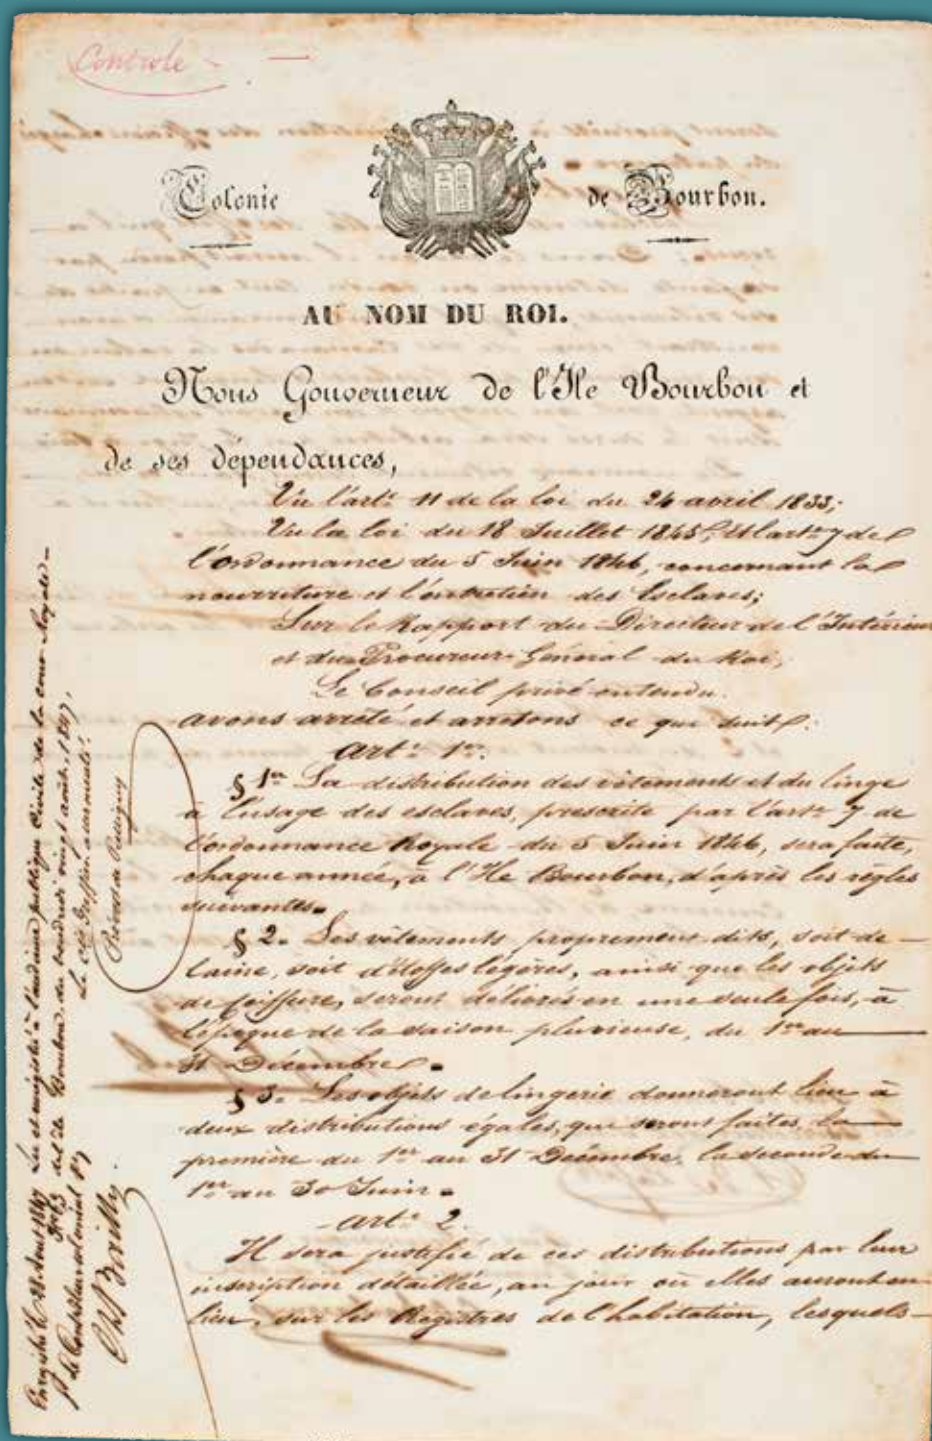 Controle
Colonie de Bourbon.
AU NOM DU ROI.
Nous Gouverneur de l'Ile Bourbon et
de ses dépendances,
Vu l'artˡᵉ 11 de la loi du 24 avril 1833;
Vu la loi du 18 Juillet 1845, et l'artˡᵉ 7 de
l'ordonnance du 5 Juin 1846, concernant la
nourriture et l'entretien des Esclaves;
Sur le Rapport du Directeur de l'Intérieur
et du Procureur Général du Roi,
Le Conseil privé entendu.
avons arrêté et arretons ce qui suit:
artˡᵉ 1ᵉʳ.
§ 1ᵉʳ La distribution des vêtements et du linge
à l'usage des esclaves, prescrite par l'artˡᵉ 7 de
l'ordonnance Royale du 5 Juin 1846, sera faite,
chaque année, à l'Ile Bourbon, d'après les règles
suivantes.
§ 2. Les vêtements proprement dits, soit de
laine, soit d'étoffes légères, ainsi que les objets
de coiffure, seront délivrés en une seule fois, à
l'époque de la saison pluvieuse, du 1ᵉʳ au
31 Décembre.
§ 3. Les objets de lingerie donneront lieu à
deux distributions égales, qui seront faites, la
première du 1ᵉʳ au 31 Décembre, la seconde du
1ᵉʳ au 30 Juin.
artˡᵉ 2.
Il sera justifié de ces distributions par leur
inscription détaillée, au jour où elles auront eu
lieu, sur les Registres de l'habitation, lesquels
Lu et enregistré à l'audience publique Civile de la cour Royale
de l'Ile Bourbon, du vendredi vingt août, 1847,
Le Greffier assermenté.
Enregistré le 28 Aout 1847
Nº 63
Le Contrôleur colonial